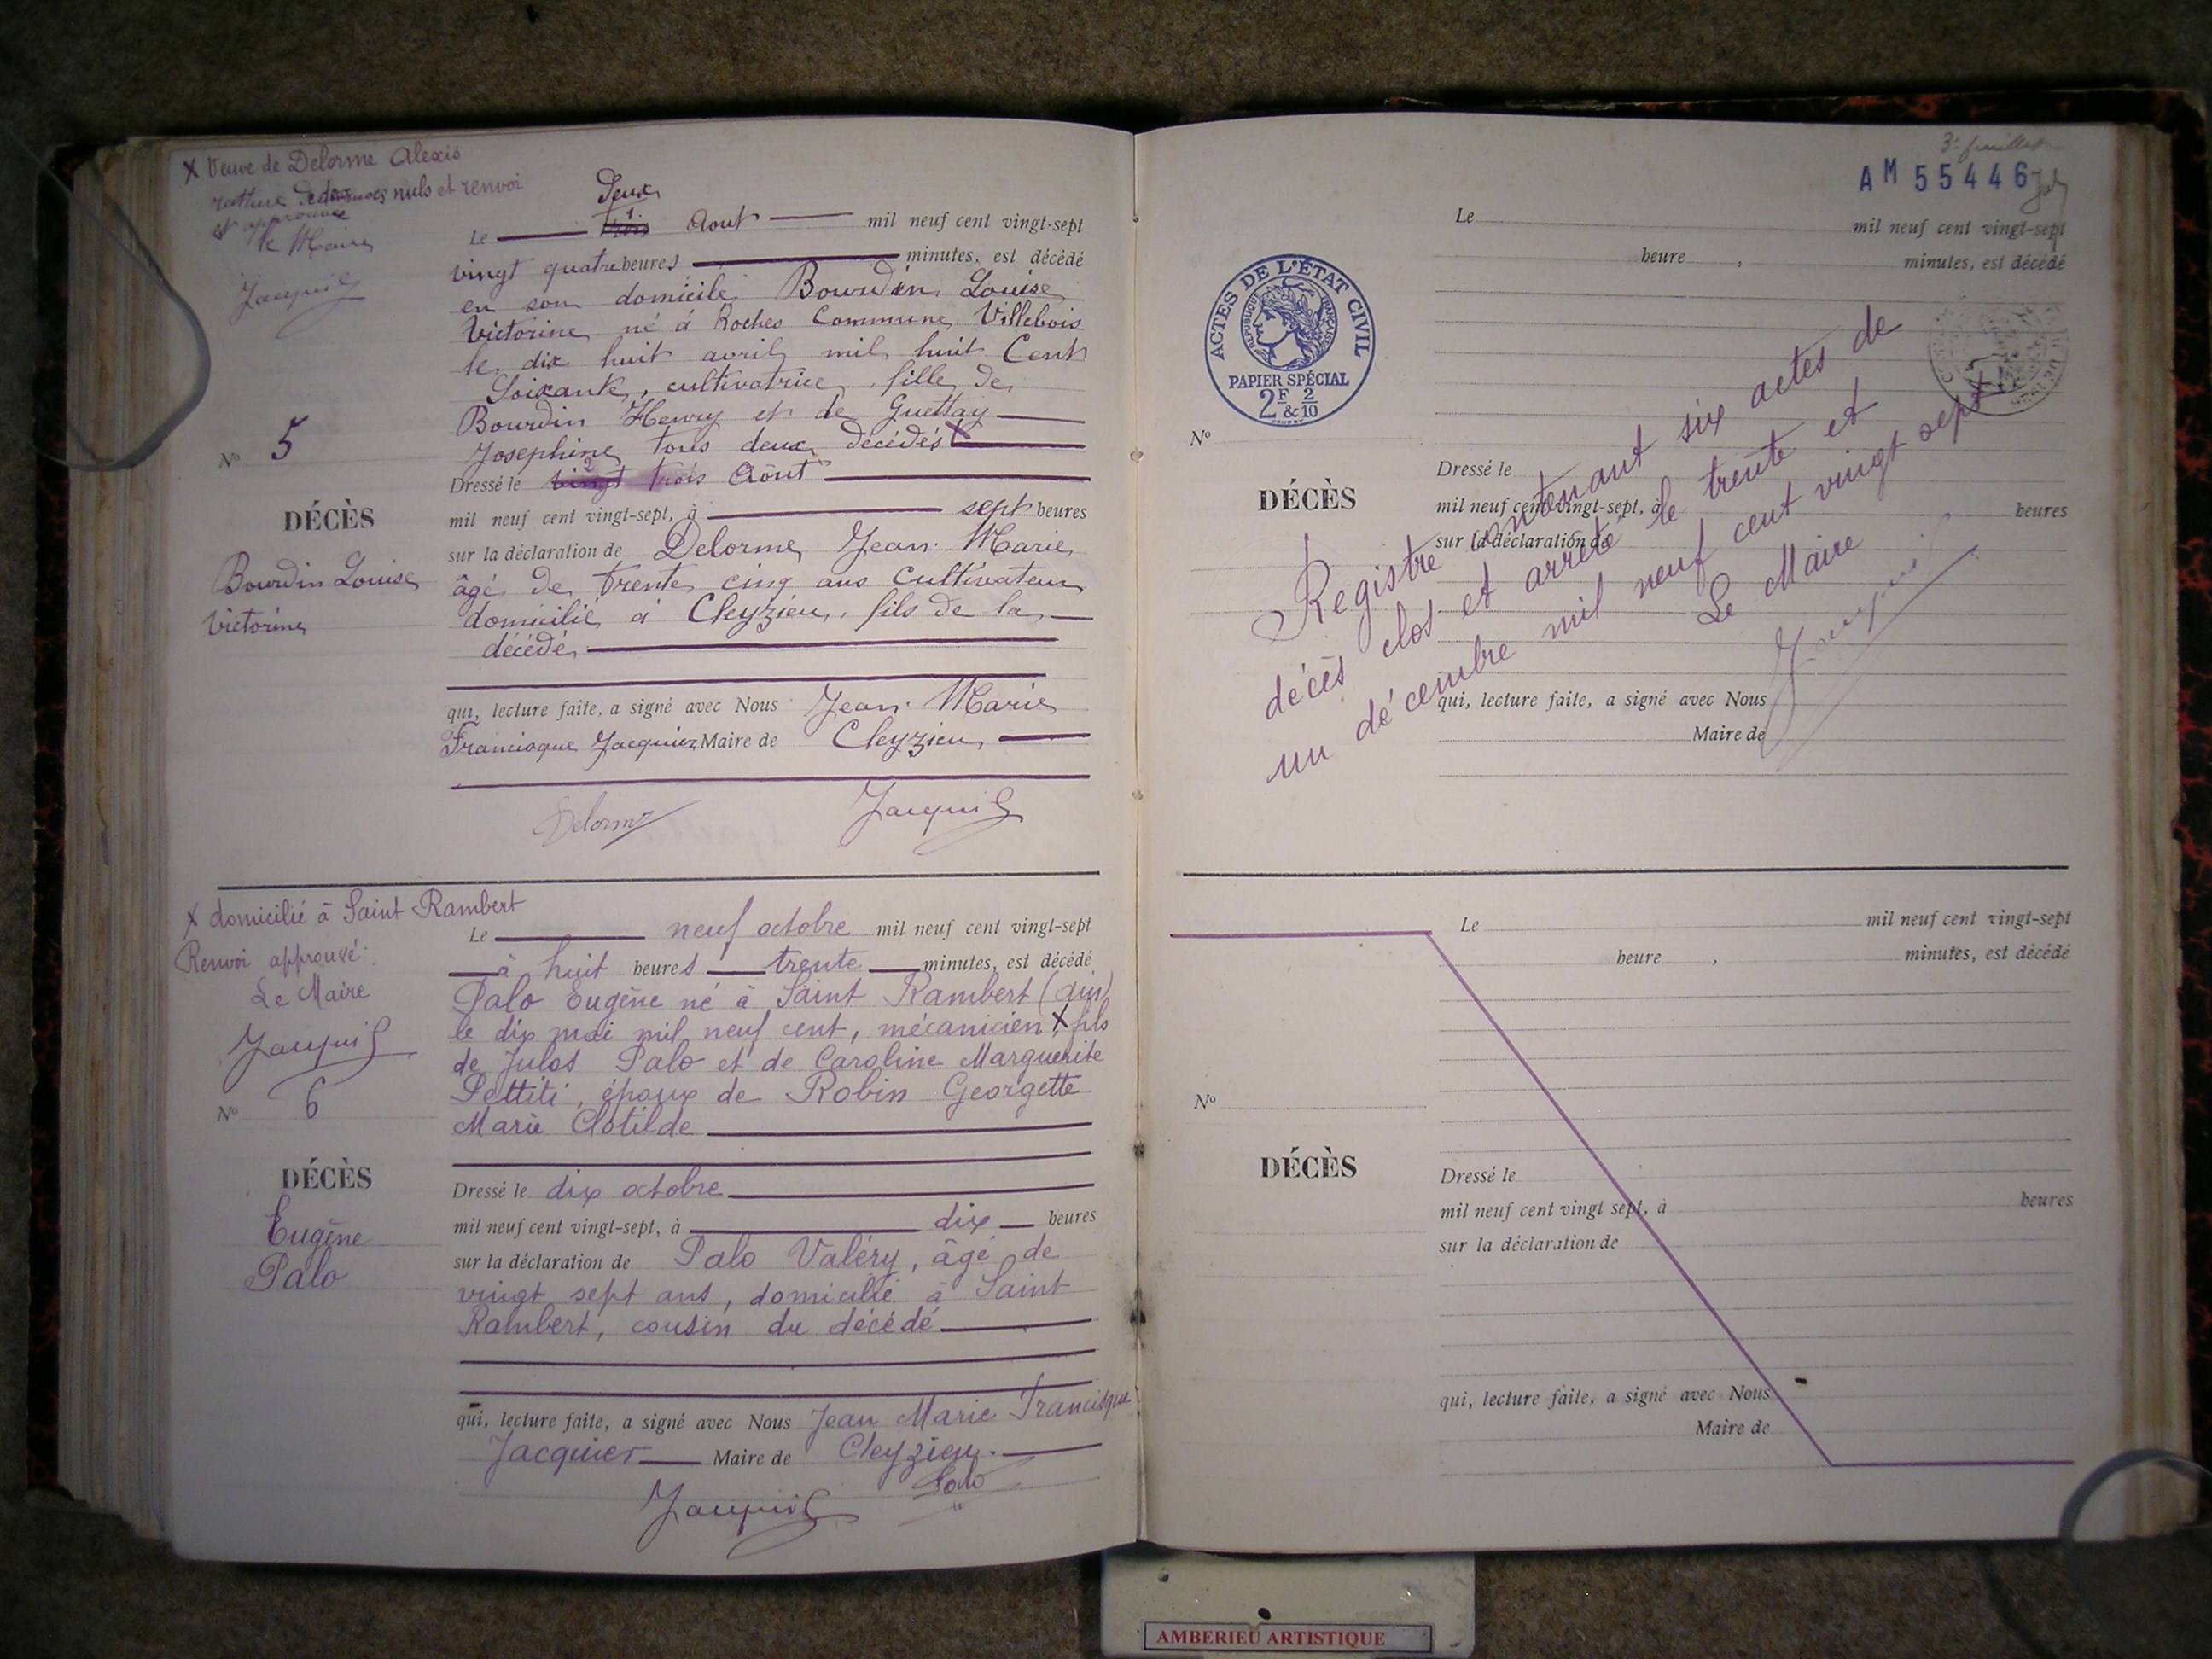 X Veuve de Delorme Alexis
rature de deux nuls et renvoi
et approuvée
le Maire
Jacquier
Deux
Le trois Aout mil neuf cent vingt-sept
vingt quatre heures minutes, est décédé
en son domicile Bourdin Louise
Victorine né à Roches Commune Villebois
le dix huit avril mil huit Cent
Soixante, cultivatrice, fille de
Bourdin Henry et de Guettay
Josephine tous deux décédés X
Dressé le vingt trois Aôut
mil neuf cent vingt-sept, à sept heures
sur la déclaration de Delorme Jean Marie
âgé de trente cinq ans Cultivateur
domicilié à Cleyzieu, fils de la
décédé
qui, lecture faite, a signé avec Nous Jean Marie
Francisque Jacquier Maire de Cleyzieu
Delorme Jacquier
No 5
DÉCÈS
Bourdin Louise
Victorine
X domicilié à Saint Rambert
Renvoi approuvé
Le Maire
Jacquier
No 6
DÉCÈS
Eugène
Palo
Le neuf octobre mil neuf cent vingt-sept
à huit heures trente minutes, est décédé
Palo Eugène né à Saint Rambert (Ain)
le dix mai mil neuf cent, mécanicien X fils
de Julos Palo et de Caroline Marguerite
Pettiti, époux de Robin Georgette
Marie Clotilde
Dressé le dix octobre
mil neuf cent vingt-sept, à dix heures
sur la déclaration de Palo Valéry, âgé de
vingt sept ans, domicilié à Saint
Rambert, cousin du décédé
qui, lecture faite, a signé avec Nous Jean Marie Francisque
Jacquier Maire de Cleyzieu
Jacquier Palo
3e feuillet
AM 55446
Le mil neuf cent vingt-sept
heure, minutes, est décédé
ACTES DE L'ÉTAT CIVIL
RÉPUBLIQUE FRANÇAISE
PAPIER SPÉCIAL
2F & 2/10
No
DÉCÈS
Dressé le
mil neuf cent vingt-sept, à heures
sur la déclaration de
qui, lecture faite, a signé avec Nous
Maire de
Registre contenant six actes de
décès clos et arrêté le trente et
un décembre mil neuf cent vingt sept
Le Maire
Jacquier
Le mil neuf cent vingt-sept
heure, minutes, est décédé
No
DÉCÈS
Dressé le
mil neuf cent vingt sept, à heures
sur la déclaration de
qui, lecture faite, a signé avec Nous
Maire de
AMBERIEU ARTISTIQUE